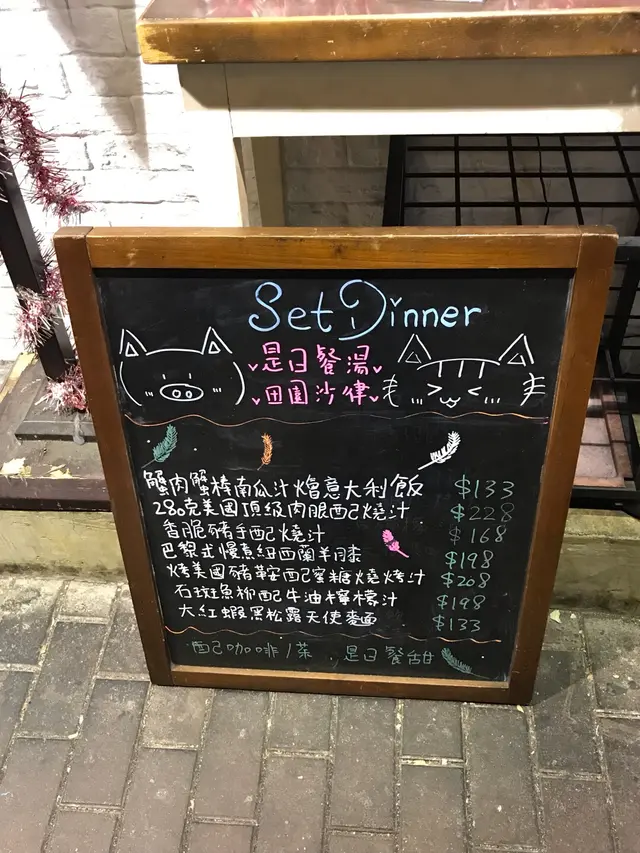 Set Dinner
是日餐湯
田園沙律
蟹肉蟹棒南瓜汁燴意大利飯 $133
280克美國頂級肉眼配燒汁 $228
香脆豬手配燒汁 $168
巴黎式慢煮紐西蘭羊膝 $198
烤美國豬鞍配蜜糖燒烤汁 $208
石斑魚柳配牛油檸檬汁 $198
大紅蝦黑松露天使麵 $133
配咖啡/茶 是日餐甜